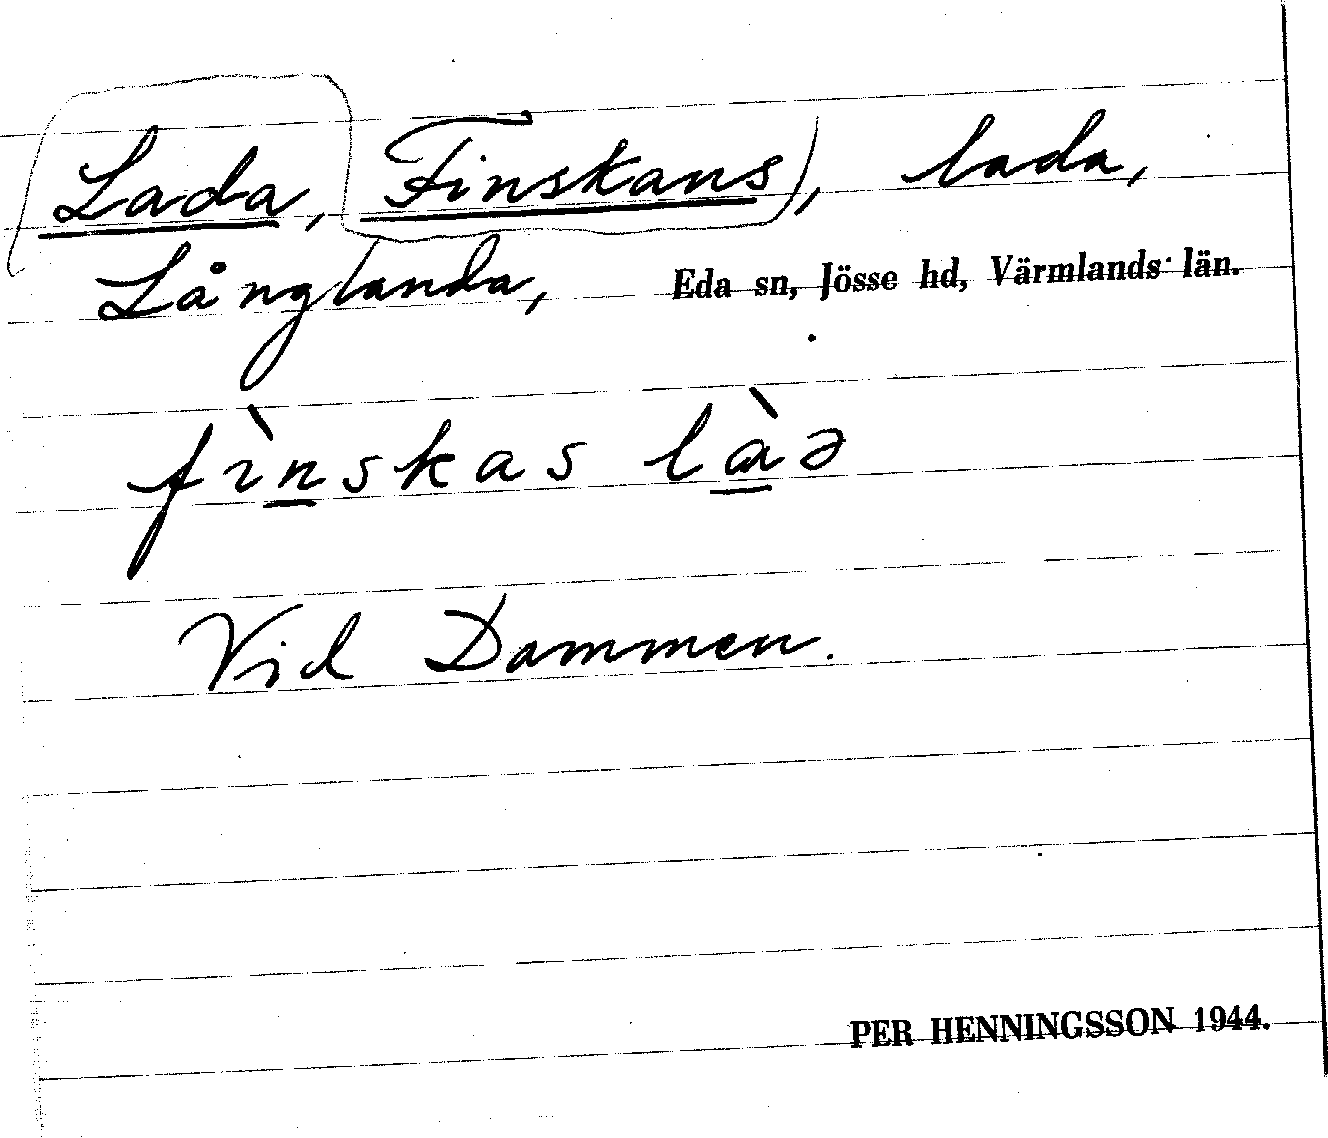 Lada, Finskans), lada,
Långlanda, Eda sn, Jösse hd, Värmlands län.
fı̀nskas làə
Vid Dammen.
PER HENNINGSSON 1944.